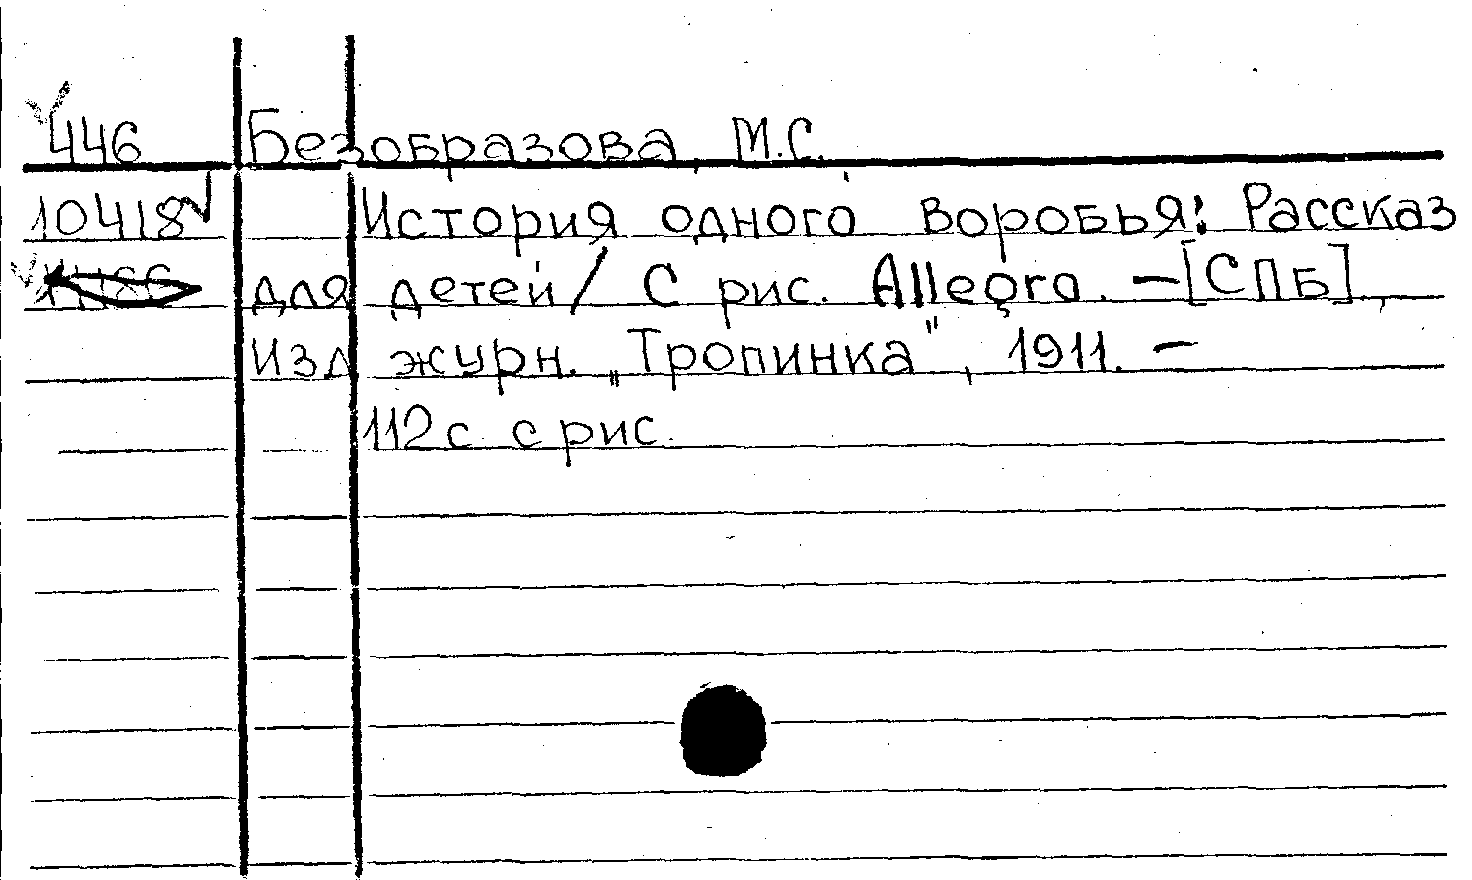 446 Безобразова М.С.
10418 История одного воробья: Рассказ
для детей / С рис. Allegro. — [СПБ],
Изд журн. „Тропинка", 1911. —
112 с с рис.